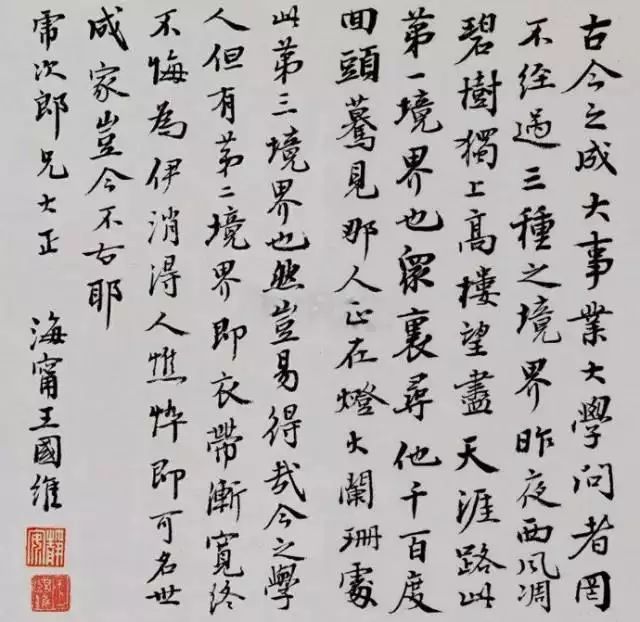 古今之成大事業大學問者罔
不經過三種之境界昨夜西風凋
碧樹獨上高樓望盡天涯路此
第一境界也眾裏尋他千百度
回頭驀見那人正在燈火闌珊處
此第三境界也然豈易得哉今之學
人但有第二境界即衣帶漸寬終
不悔為伊消得人憔悴即可名世
成家豈今不古耶
乕次郎兄大正
海甯王國維
靜安